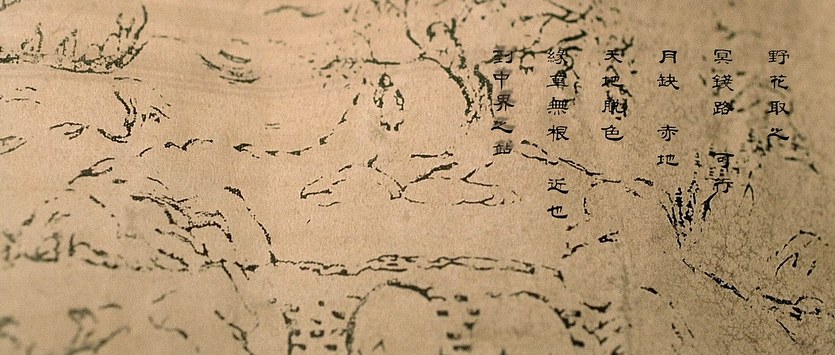 野花取之
冥錢路 可行
月缺 赤地
天地脫色
緣草無根 近也
到中界之始